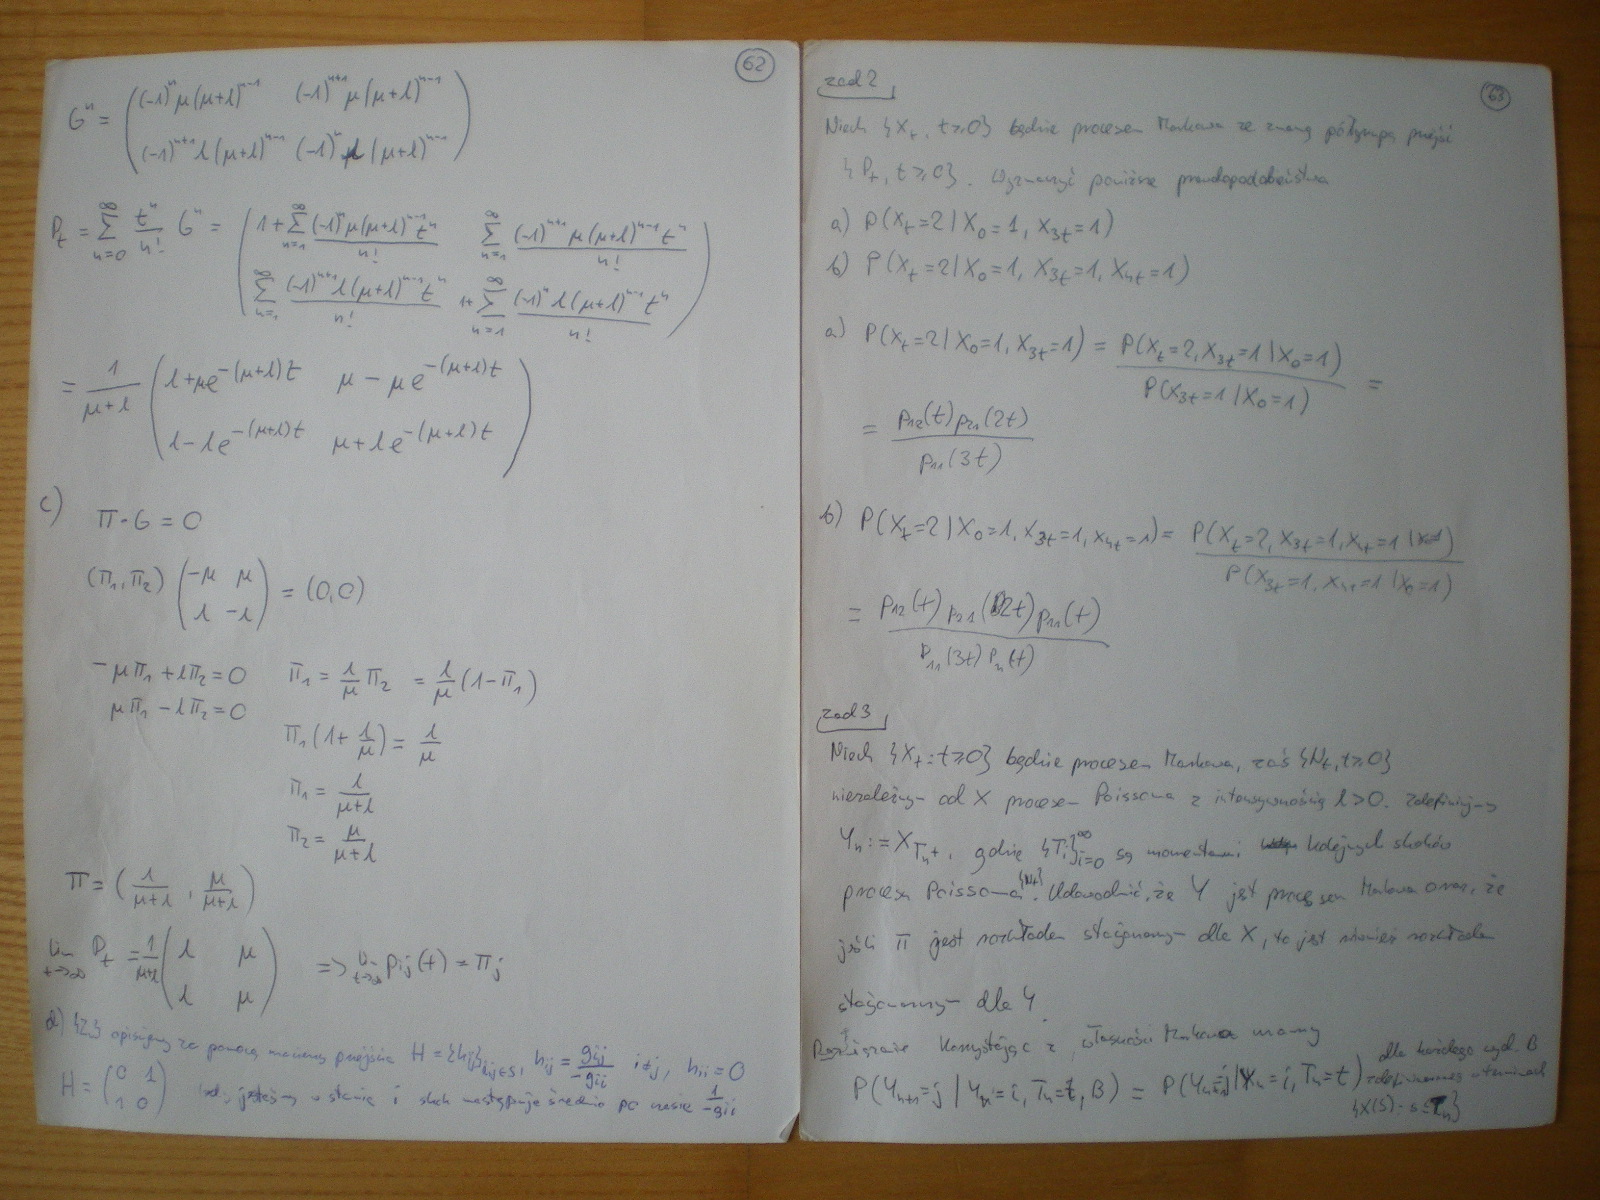 62
Gⁿ = ( (-1)ⁿ μ(μ+λ)ⁿ⁻¹   (-1)ⁿ⁺¹ μ(μ+λ)ⁿ⁻¹
(-1)ⁿ⁺¹ λ(μ+λ)ⁿ⁻¹   (-1)ⁿ λ(μ+λ)ⁿ⁻¹ )
P_t = Σ_{n=0}^∞ tⁿ/n! Gⁿ = ( 1+Σ_{n=1}^∞ (-1)ⁿ μ(μ+λ)ⁿ⁻¹ tⁿ / n!   Σ_{n=1}^∞ (-1)ⁿ⁺¹ μ(μ+λ)ⁿ⁻¹ tⁿ / n!
Σ_{n=1}^∞ (-1)ⁿ⁺¹ λ(μ+λ)ⁿ⁻¹ tⁿ / n!   1+Σ_{n=1}^∞ (-1)ⁿ λ(μ+λ)ⁿ⁻¹ tⁿ / n! )
= 1/(μ+λ) ( λ+μe^{-(μ+λ)t}   μ-μe^{-(μ+λ)t}
λ-λe^{-(μ+λ)t}   μ+λe^{-(μ+λ)t} )
c) π·G = 0
(π₁, π₂) ( -μ μ
λ -λ ) = (0,0)
-μπ₁+λπ₂=0   π₁ = λ/μ π₂ = λ/μ (1-π₁)
μπ₁-λπ₂=0
π₁(1+ λ/μ) = λ/μ
π₁ = λ/(μ+λ)
π₂ = μ/(μ+λ)
π = ( λ/(μ+λ) , μ/(μ+λ) )
lim_{t→∞} P_t = 1/(μ+λ) ( λ μ
λ μ ) => lim_{t→∞} p_ij(t) = π_j
d) {Z_n} opisujemy za pomocą macierzy przejścia H = {h_ij}_{i,j∈S}, h_ij = g_ij/-g_ii i≠j, h_ii = 0
H = ( 0 1
1 0 ) jesteśmy w stanie i skok następuje średnio po czasie 1/-g_ii
63
zad 2
Niech {X_t, t≥0} będzie procesem Markowa ze znaną półgrupą przejść
{P_t, t≥0}. Wyznaczyć poniższe prawdopodobieństwa
a) P(X_t=2 | X_0=1, X_3t=1)
b) P(X_t=2 | X_0=1, X_3t=1, X_4t=1)
a) P(X_t=2 | X_0=1, X_3t=1) = P(X_t=2, X_3t=1 | X_0=1) / P(X_3t=1 | X_0=1) =
= p₁₂(t) p₂₁(2t) / p₁₁(3t)
b) P(X_t=2 | X_0=1, X_3t=1, X_4t=1) = P(X_t=2, X_3t=1, X_4t=1 | X_0=1) / P(X_3t=1, X_4t=1 | X_0=1)
= p₁₂(t) p₂₁(2t) p₁₁(t) / p₁₁(3t) p₁₁(t)
zad 3
Niech {X_t : t≥0} będzie procesem Markowa, zaś {N_t, t≥0}
niezależnym od X procesem Poissona z intensywnością λ>0. Zdefiniujmy
Y_n := X_{T_n+}, gdzie {T_i}_{i=0}^∞ są momentami kolejnych skoków
procesu Poissona {N_t}. Udowodnić, że Y jest procesem Markowa oraz, że
jeśli π jest rozkładem stacjonarnym dla X, to jest również rozkładem
stacjonarnym dla Y.
Rozwiązanie Korzystając z własności Markowa mamy
P(Y_{n+1}=j | Y_n=i, T_n=t, B) = P(Y_{n+1}=j | Y_n=i, T_n=t) dla każdego zd. B
zdefiniowanego w terminach
{X(s): s≤T_n}